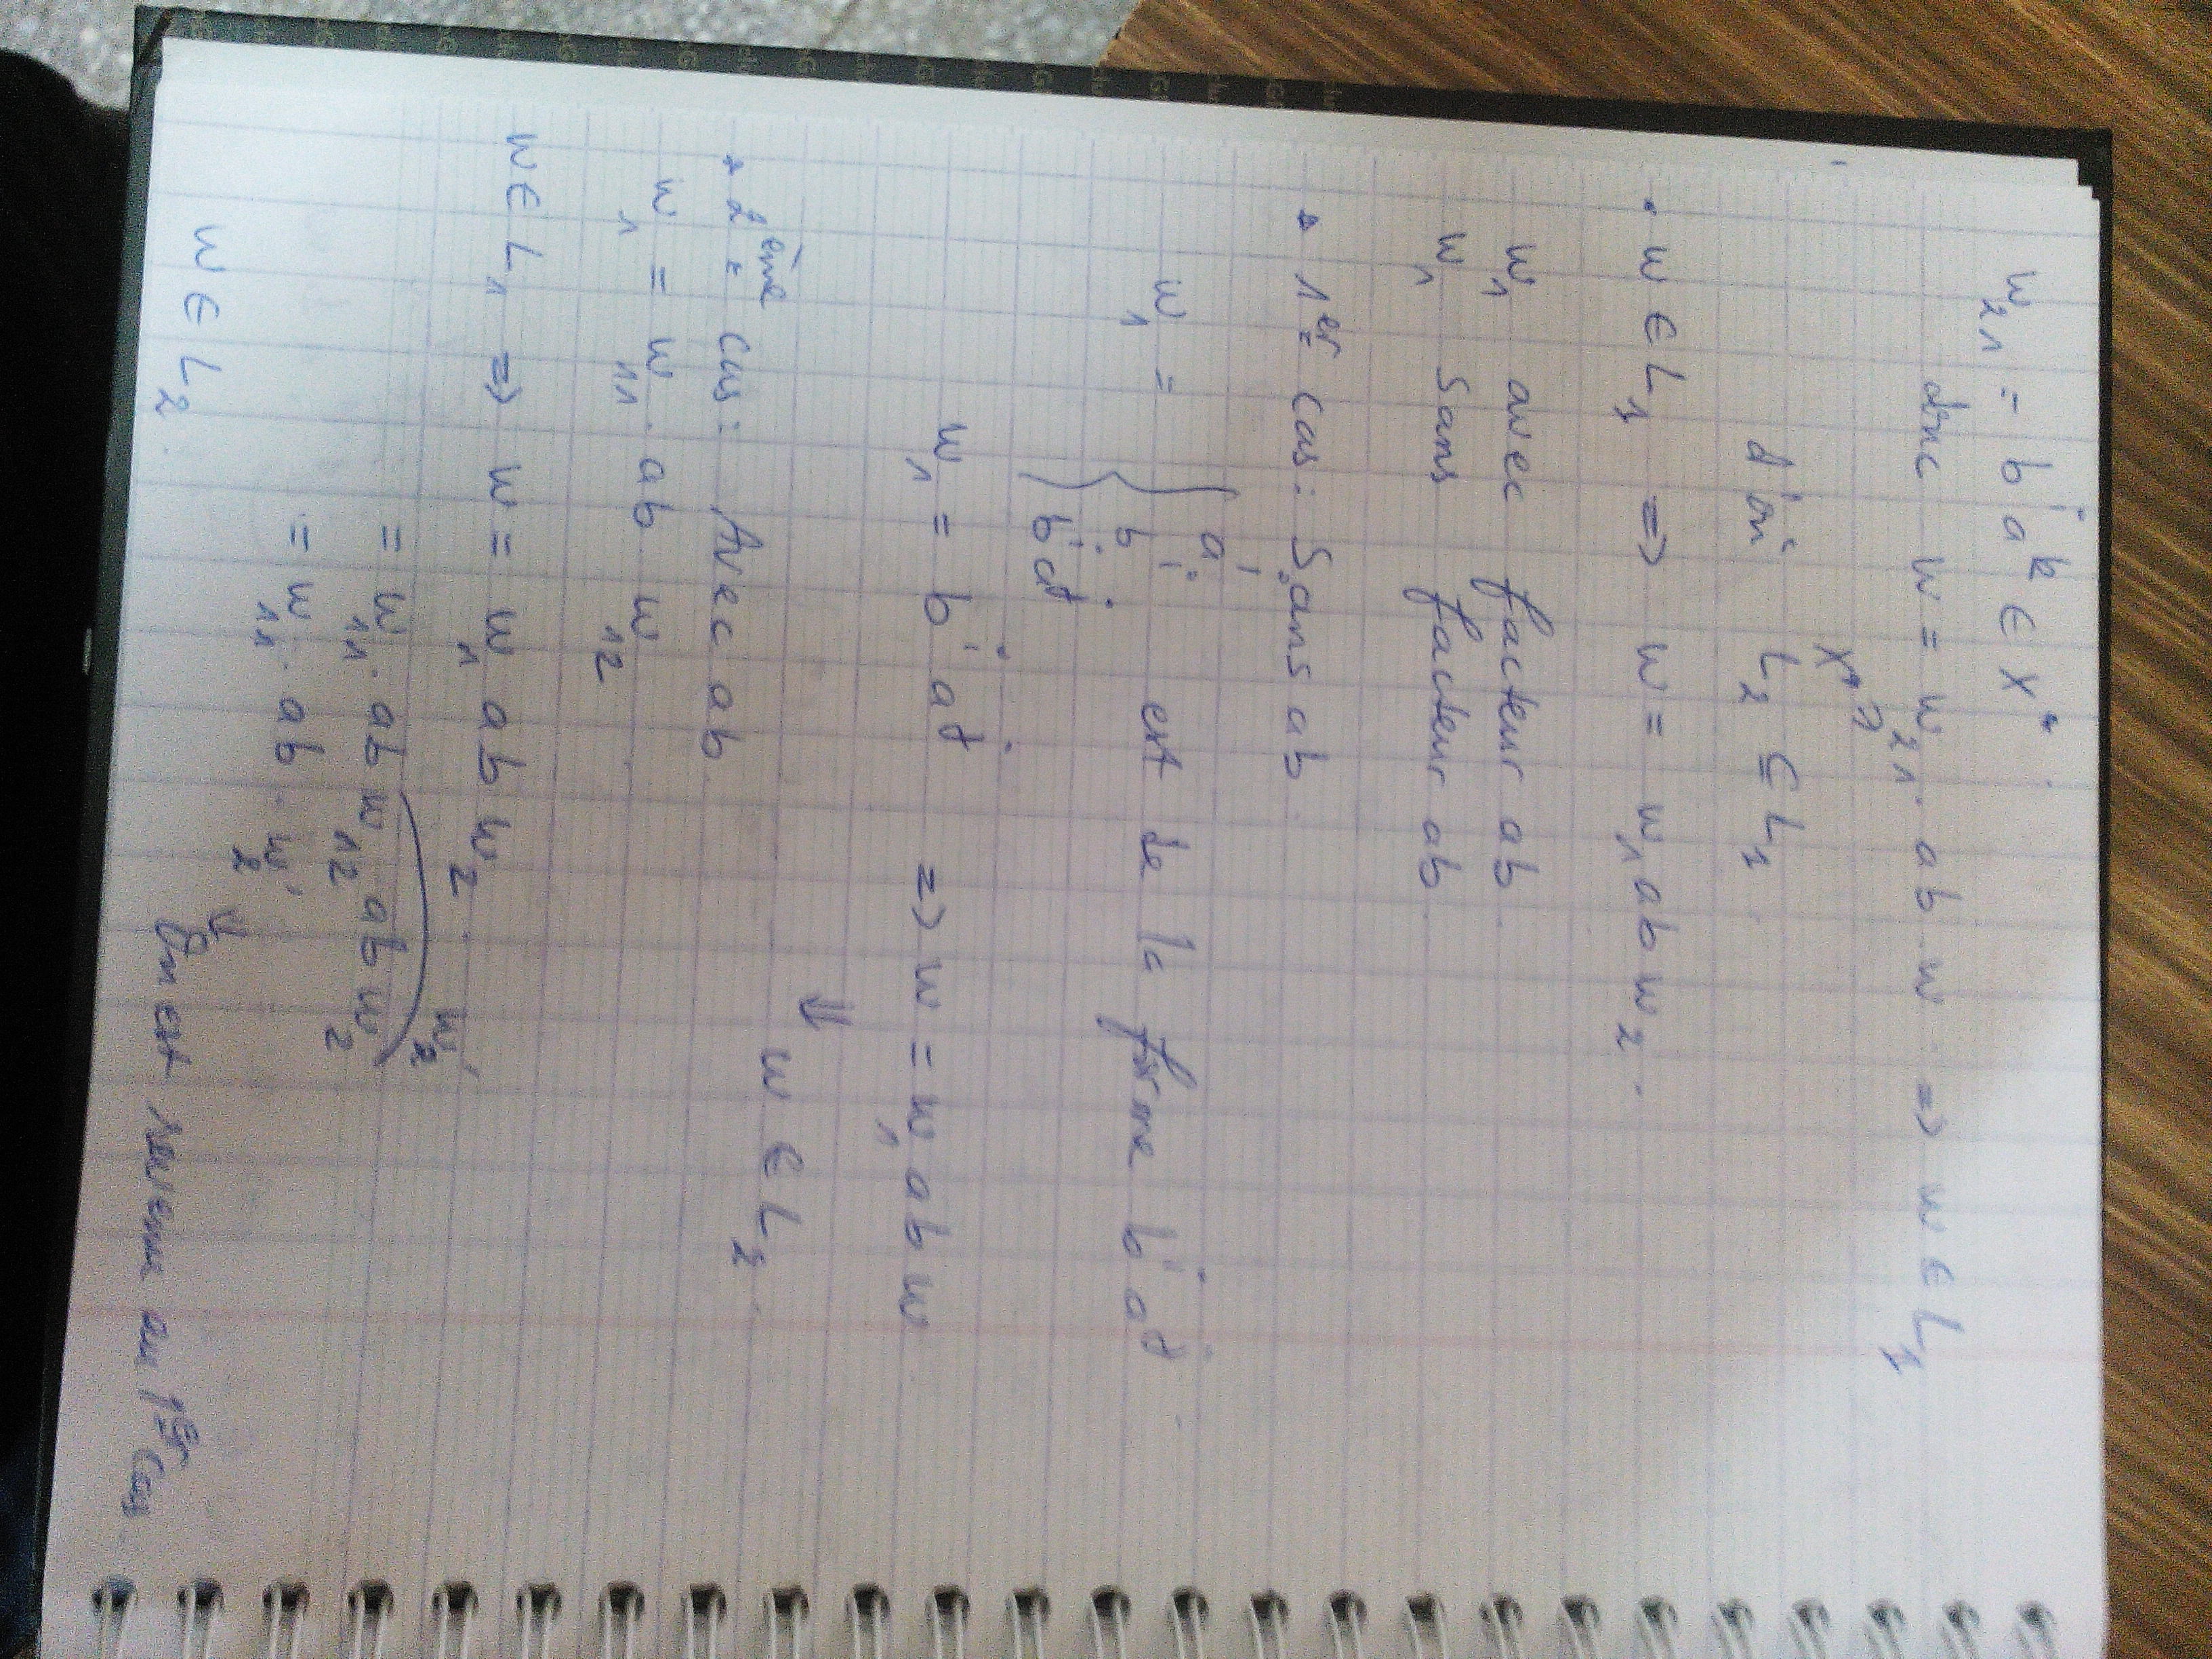 w₂₁ = bⁱ aᵏ ∈ X*
donc w = w₂₁ . ab w => w ∈ L₁
X* ∋
d'où L₂ ⊆ L₁
. w ∈ L₁ => w = w₁ ab w₂ .
w₁ avec facteur ab
w₁ Sans facteur ab
* 1er cas : Sans ab
aⁱ
w₁ = { bⁱ est de la forme bⁱ aʲ
bⁱ aʲ
w₁ = bⁱ aʲ => w = w₁ ab w
⇓
w ∈ L₂
* 2ème cas : Avec ab
w₁ = w₁₁ . ab w₁₂
w ∈ L₁ => w = w₁ ab w₂ .
w₂'
= w₁₁ . ab w₁₂ ab w₂
= w₁₁ . ab . w₂'
⇓
w ∈ L₂ .
On est revenu au 1er cas